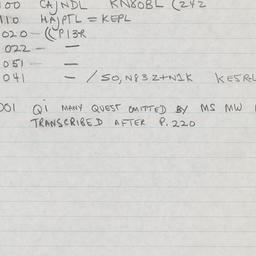 00 CAJNDL KN80BL (242
110 HAJPTL = KEPL
020 - (CP13R
022 - —
051 —
041 - / SO, N83Z+N1K KE5RL
001 Qi MANY QUEST OMITTED BY MS MW
TRANSCRIBED AFTER P. 220